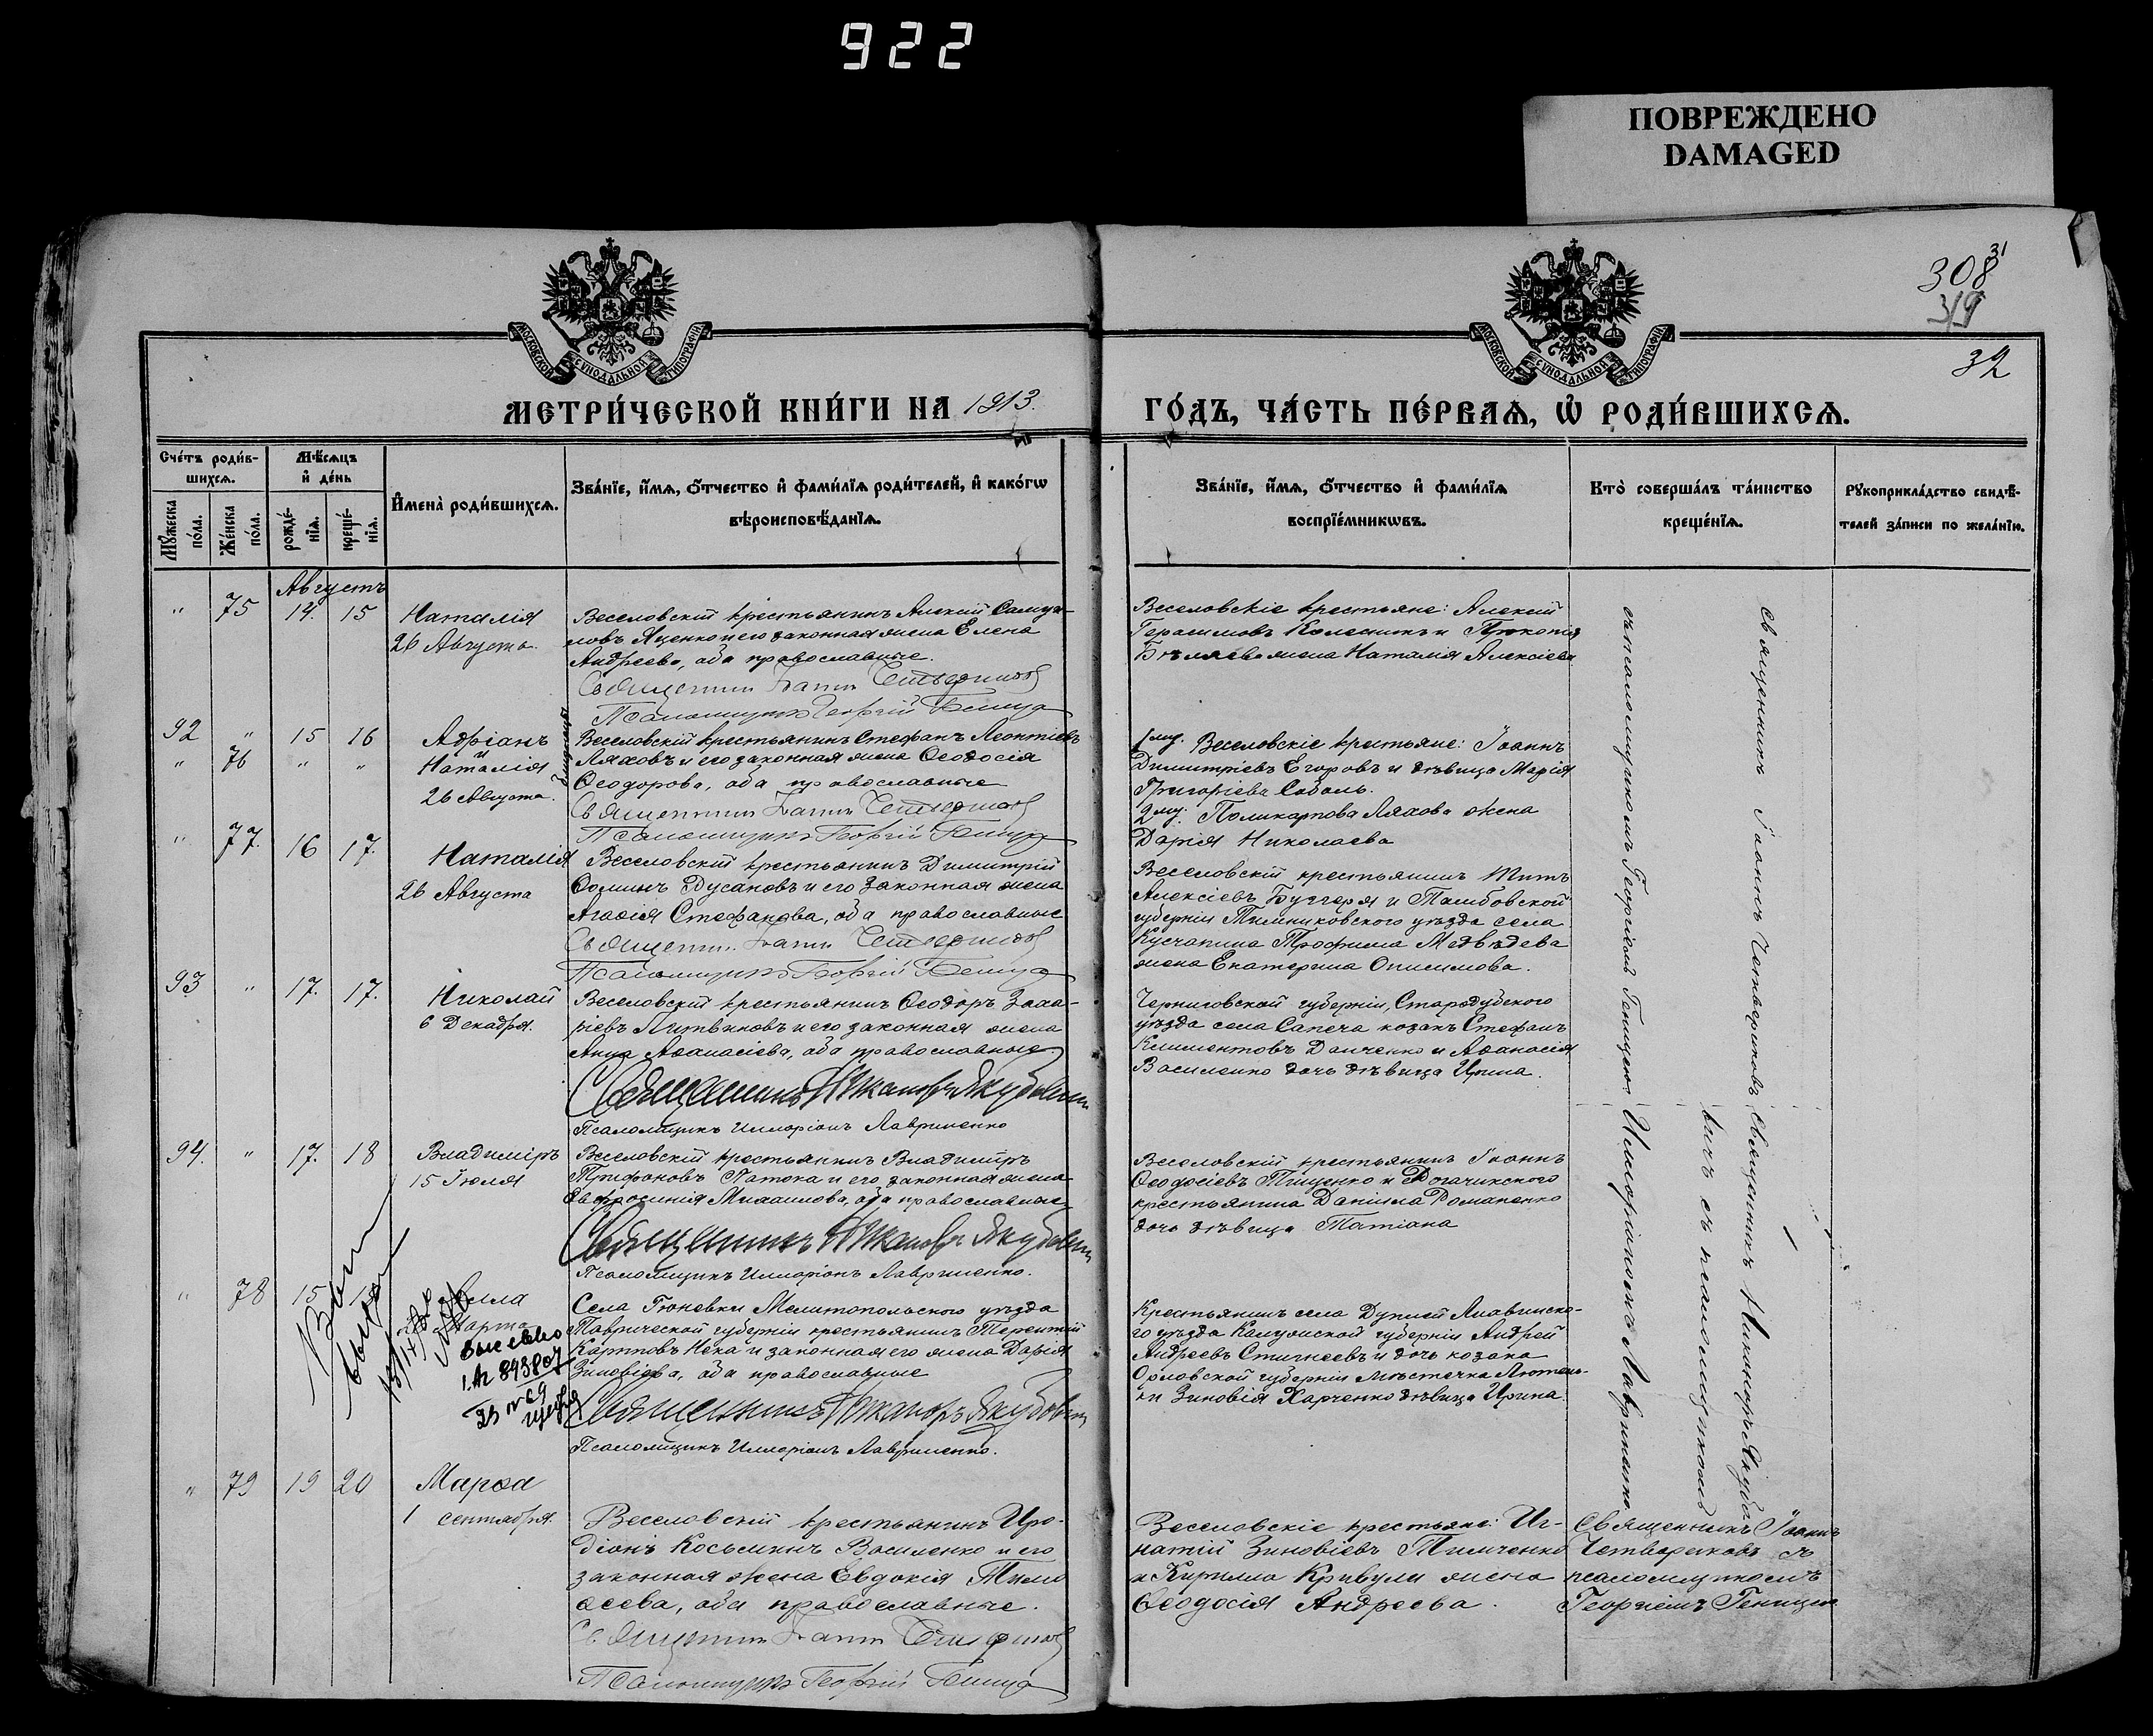 922
ПОВРЕЖДЕНО
DAMAGED
31
308
319
32
МОСКОВСКОЙ СѴНОДАЛЬНОЙ ТИПОГРАФІИ
МОСКОВСКОЙ СѴНОДАЛЬНОЙ ТИПОГРАФІИ
МЕТРИ́ЧЕСКОЙ КНИ́ГИ НА 1913.
ГО́ДЪ, ЧА́СТЬ ПЕ́РВАѦ, Ѡ҆ РОДИ́ВШИХСѦ.
Сче́тъ роди́в-
шихсѧ.
Мꙋ́жеска по́ла.
Же́нска по́ла.
Мѣ́сѧцъ
и҆ де́нь
рожде́-
нїѧ.
креще́-
нїѧ.
И҆мена̀ роди́вшихсѧ.
Зва́нїе, и҆́мѧ, ѻ҆́тчество и҆ фами́лїѧ роди́телей, и҆ како́гѡ
вѣроисповѣ́данїѧ.
Зва́нїе, и҆́мѧ, ѻ҆́тчество и҆ фами́лїѧ
воспрїе́мникѡвъ.
Кто̀ соверша́лъ та́инство
креще́нїѧ.
Рꙋкоприкла́дство свидѣ́-
телей за́писи по жела́нїю.
Августъ
" 75 14. 15 Наталія
26 Августа.
Веселовскій крестьянинъ Алексій Самуи-
ловъ Яценко и его законная жена Елена
Андреева, оба православные.
Священникъ Іоаннъ Четвериковъ
Псаломщикъ Георгій Геница
Веселовскіе крестьяне: Алексій
Герасимовъ Колесникъ и Прокопія
Бѣляева жена Наталія Алексіева
92 " 15 16 Адріанъ
и
" 76 " " Наталія
26 Августа.
Веселовскій крестьянинъ Стефанъ Леонтіевъ
Ляховъ и его законная жена Ѳеодосія
Ѳеодорова, оба православные
Священникъ Іоаннъ Четвериковъ
Псаломщикъ Георгій Геница
1му. Веселовскіе крестьяне: Іоаннъ
Димитріевъ Егоровъ и дѣвица Марія
Григоріева Соболь.
2му: Поликарпова Ляхова жена
Дарія Николаева
" 77. 16 17. Наталія
26 Августа
Веселовскій крестьянинъ Димитрій
Ѳоминъ Дусановъ и его законная жена
Агафія Стефанова, оба православные
Священникъ Іоаннъ Четвериковъ
Псаломщикъ Георгій Геница
Веселовскій крестьянинъ Титъ
Алексіевъ Буггеря и Тамбовской
губерніи Темниковского уѣзда села
Кусчапина Трофима Медвѣдева
жена Екатерина Онисимова.
93 " 17. 17. Николай
6 Декабря.
Веселовскій крестьянинъ Ѳеодоръ Заха-
ріевъ Литвиновъ и его законная жена
Анна Аѳанасіева, оба православные.
Священникъ Никаноръ Якубовичъ
Псаломщикъ Илларіонъ Лавриненко
Черниговской губерніи, Стародубского
уѣзда села Сапеча козакъ Стефанъ
Климентовъ Данченко и Аѳанасія
Василенко дочь дѣвица Ирина.
94. " 17. 18 Владиміръ
15 Іюля
Веселовскій крестьянинъ Владиміръ
Трифоновъ Патока и его законная жена
Евфросинія Михаилова, оба православные
Священникъ Никаноръ Якубовичъ
Псаломщикъ Илларіонъ Лавриненко.
Веселовскій крестьянинъ Іоаннъ
Ѳеодосіевъ Тищенко и Рогачикского
крестьянина Даніила Романенко
дочь дѣвица Татіана
" 78 15
Марта
выслано
Села Тюневки Мелитопольского уѣзда
Таврической губерніи крестьянинъ Терентій
Карповъ Нека и законная его жена Дарія
Зиновіева, оба православные
Священникъ Никаноръ Якубовичъ
Псаломщикъ Илларіонъ Лавриненко.
Крестьянинъ села Дупней Лихвинско-
го уѣзда Калужской губерніи Андрей
Андреевъ Стигнеевъ и дочь козака
Орловской губерніи мѣстечка Лютень-
ки Зиновія Харченко дѣвица Ирина.
" 79 19 20 Марѳа
1 сентября.
Веселовскій крестьянинъ Иро-
діонъ Косьминъ Василенко и его
законная жена Евдокія Тимо
ѳеева, оба православные.
Священникъ Іоаннъ Четвериковъ
Псаломщикъ Георгій Геница
Веселовскіе крестьяне: Иг-
натій Зиновіевъ Тимченко
и Кирилла Кривули жена
Ѳеодосія Андреева.
Священникъ Іоаннъ Четвериковъ
съ псаломщикомъ Георгіемъ Геницею
Священникъ Никаноръ Якубо
вичъ съ псаломщикомъ
Илларіономъ Лавриненко.
Священникъ Іоаннъ
Четвериковъ съ
псаломщикомъ
Георгіемъ Геницею